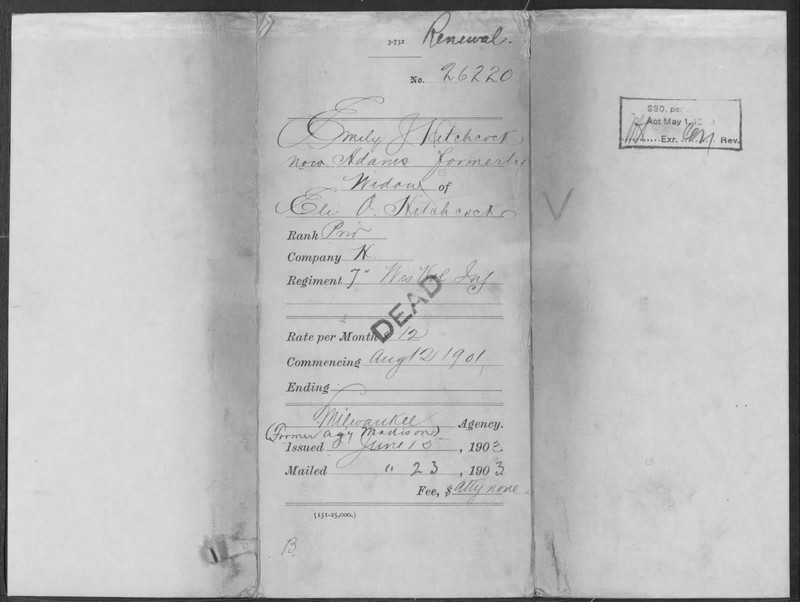 3-732 Renewal.
No. 26220
Emily J Hitchcock
now Adams formerly
Widow of
Eli O. Hitchcock
Rank Priv
Company K
Regiment 7" Wis Vol Inf
DEAD
Rate per Month $ 12
Commencing Aug 12 1901
Ending
Milwaukee Agency.
(Former agy Madison)
Issued June 15, 1903
Mailed " 23, 1903
Fee, $ Atty none.
(151-25,000.)
B.
$30. per
Act May 1,
Exr. Rev.